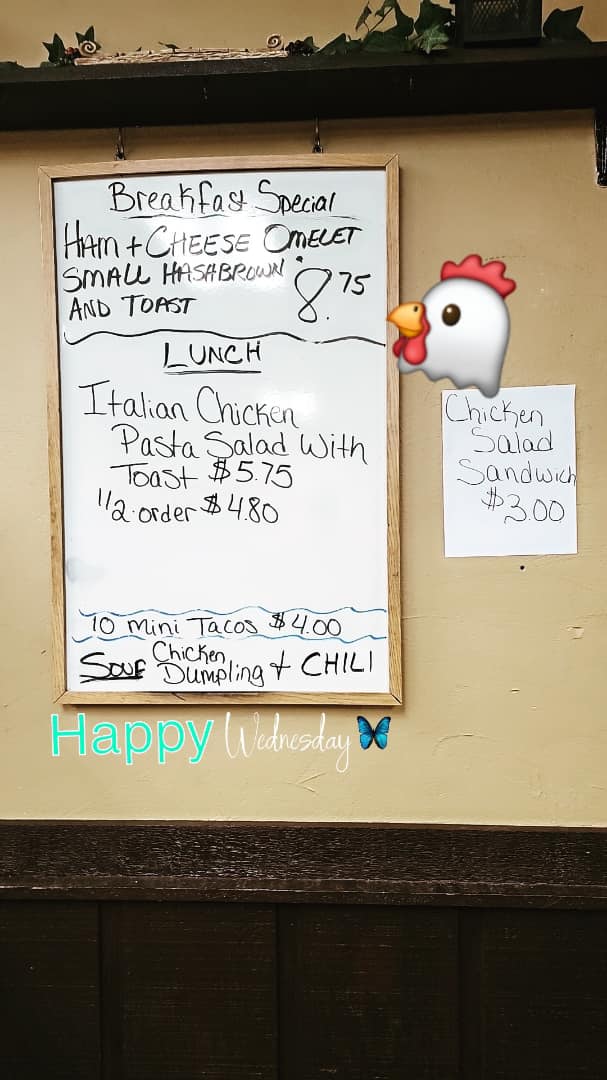 Breakfast Special
HAM + CHEESE OMELET
SMALL HASHBROWN
AND TOAST 8.75
LUNCH
Italian Chicken
Pasta Salad With
Toast $5.75
1/2 order $4.80
10 Mini Tacos $4.00
Soup Chicken Dumpling + CHILI
Chicken
Salad
Sandwich
$3.00
Happy Wednesday